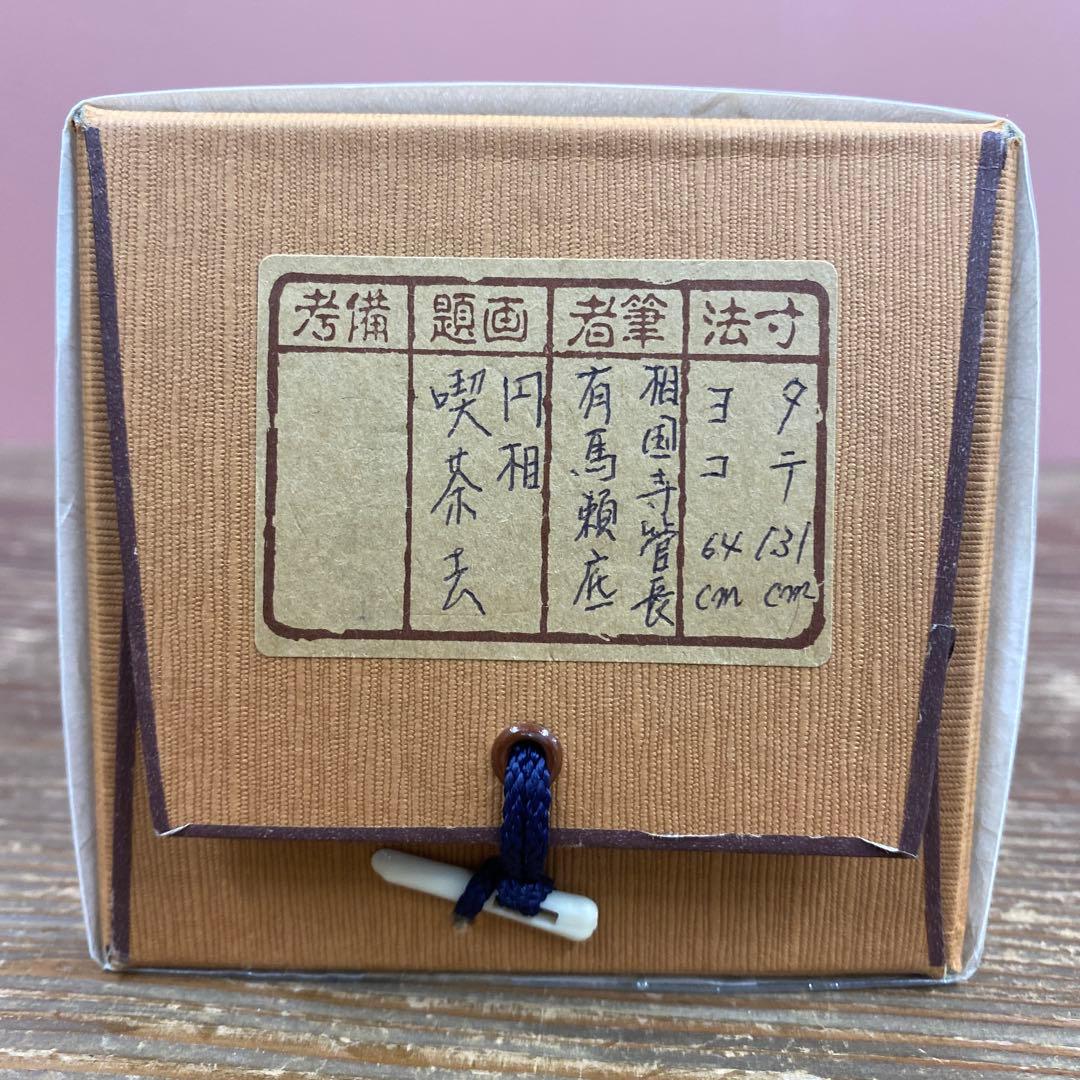 寸法
タテ 131cm
ヨコ 64cm
筆者
相国寺管長
有馬頼底
画題
円相
喫茶去
備考